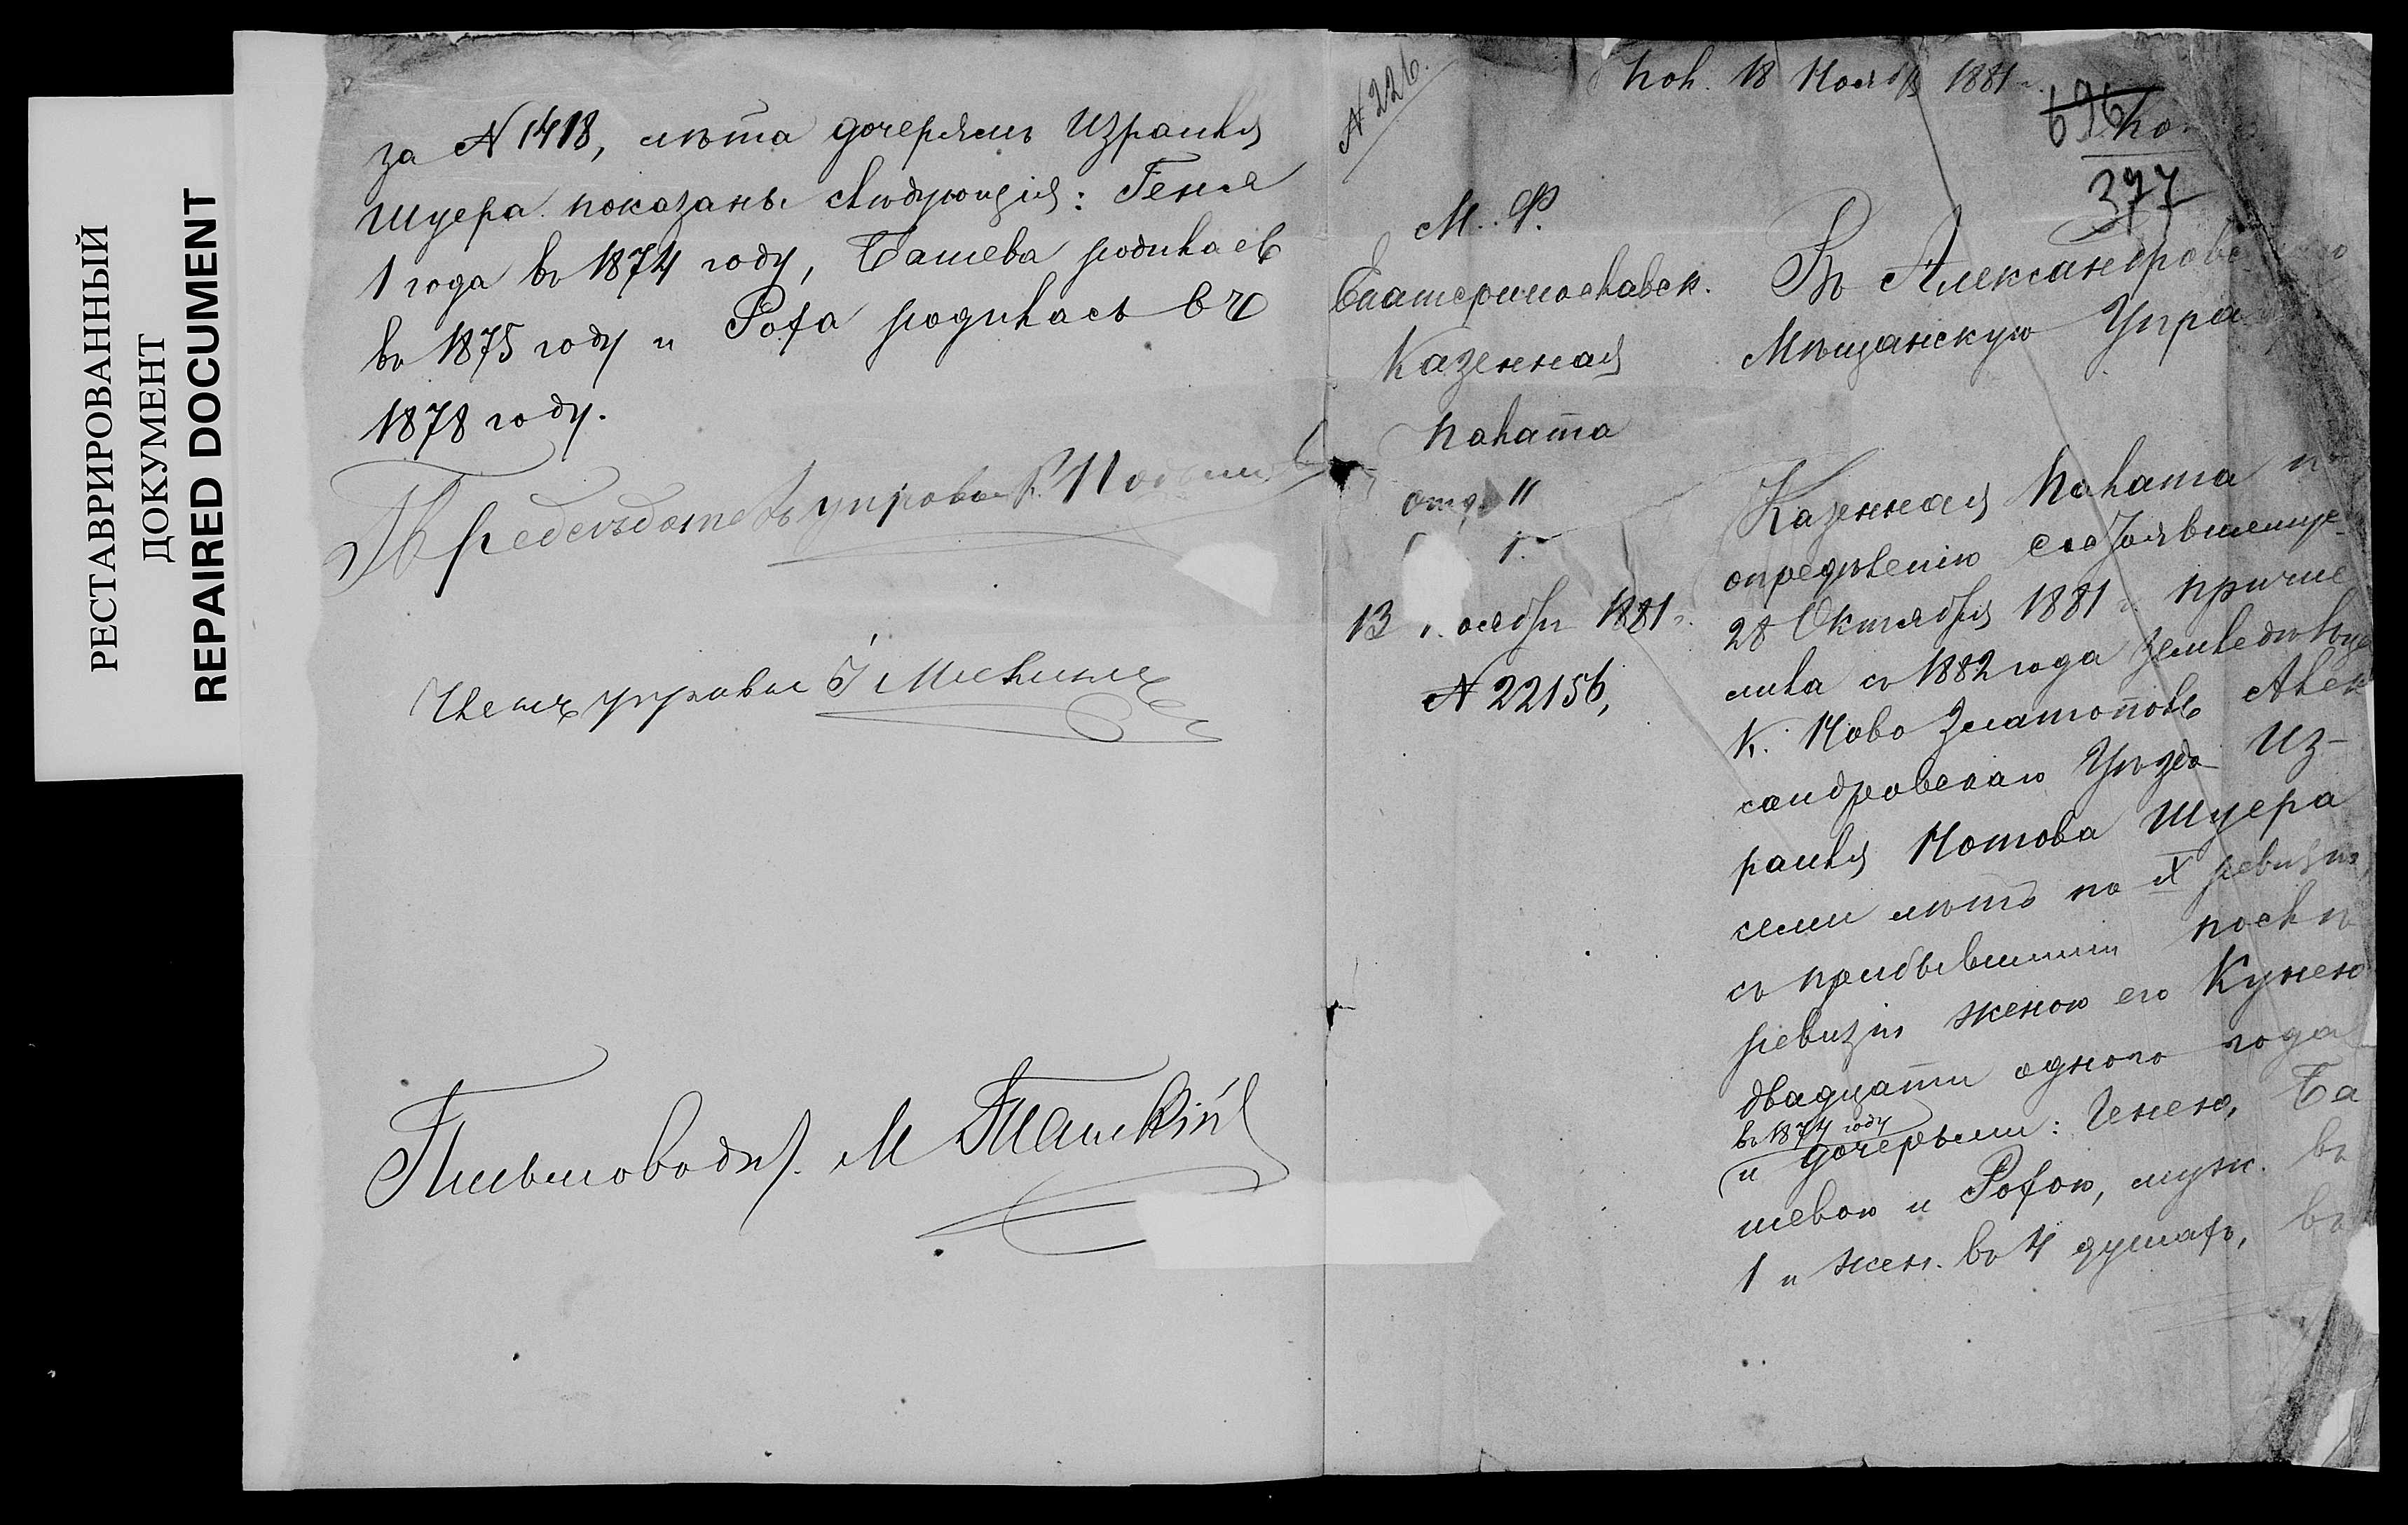 РЕСТАВРИРОВАННЫЙ
ДОКУМЕНТ
REPAIRED DOCUMENT
за N 1418, лѣта дочерямъ Израиля
Шуера показаны слѣдующія: Геня
1 года въ 1874 году, Башева родилась
въ 1875 году и Роха родилась въ
1878 году.
Предсѣдатель управы
Членъ управы
Письмовод.
N 226.
Пол. 18 Ноября 1881 г.
696
377
М. Ф.
Екатеринославск.
Казенная
Палата
отд. II
13 ноября 1881 г.
N 22156,
Въ Александровс
Мѣщанскую Упра
Казенная Палата по
опредѣленію состоявшемуся
28 Октября 1881 г. причис
лила съ 1882 года земледѣльца
к. Ново Златополь Алек
сандровскаго Уѣзда Из-
раиля Нотова Шуера
семи лѣтъ по X ревизіи,
съ прибывшими послѣ
ревизіи женою его Кунею
двадцати одного года
въ 1874 году
и дочерьми: Генею, Ба
шевою и Рохою, муж. въ
1 и жен. въ 4 душахъ, въ